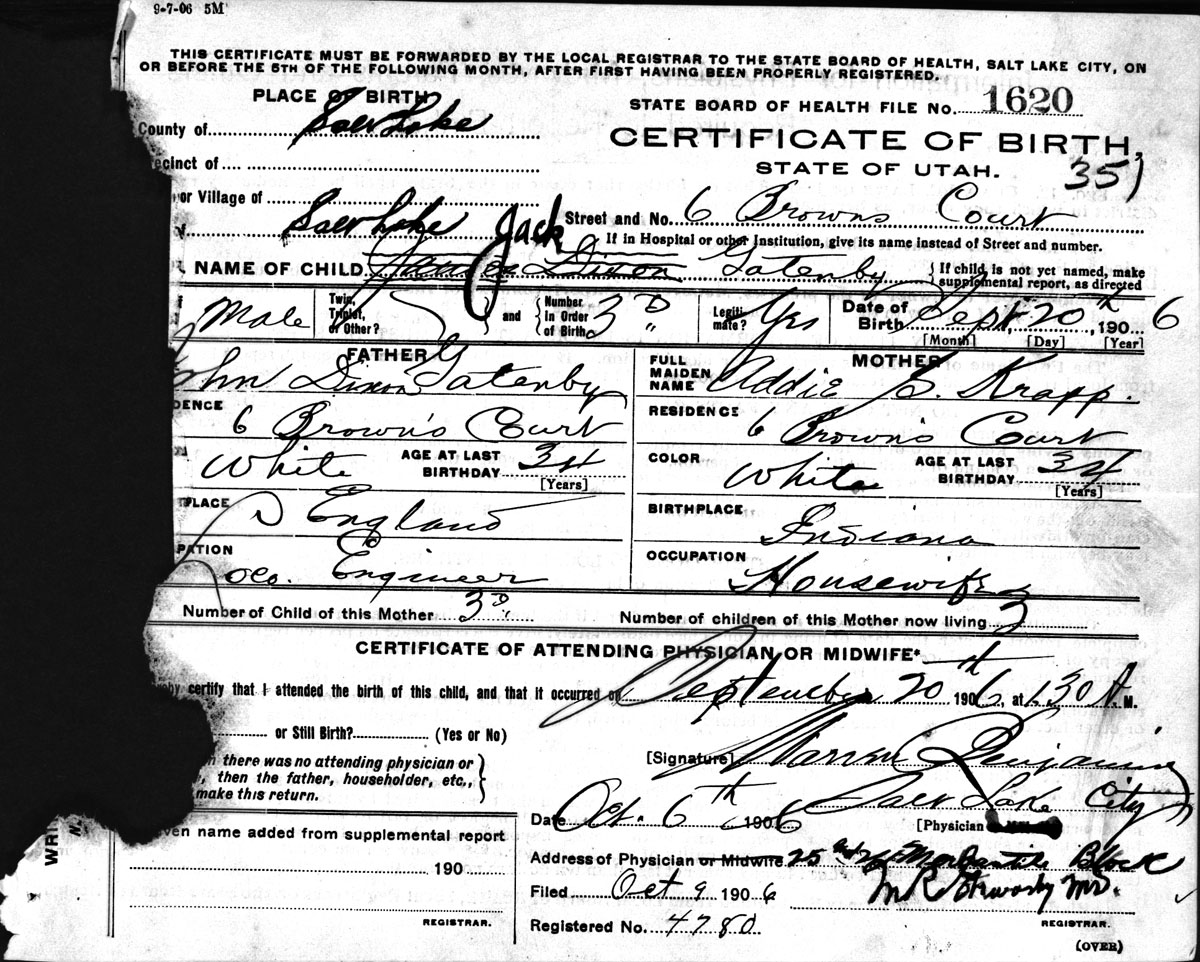 9-7-06 5M
THIS CERTIFICATE MUST BE FORWARDED BY THE LOCAL REGISTRAR TO THE STATE BOARD OF HEALTH, SALT LAKE CITY, ON
OR BEFORE THE 5TH OF THE FOLLOWING MONTH, AFTER FIRST HAVING BEEN PROPERLY REGISTERED.
PLACE OF BIRTH
STATE BOARD OF HEALTH FILE No. 1620
County of Salt Lake
CERTIFICATE OF BIRTH,
ecinct of
STATE OF UTAH.
351
or Village of
Salt Lake
Street and No. 6 Browns Court
If in Hospital or other Institution, give its name instead of Street and number.
Jack
NAME OF CHILD James Dixon Gatenby
{ If child is not yet named, make
supplemental report, as directed
Male
Twin, Triplet, or Other?
and
Number in Order of Birth 3D
Legiti-mate? Yes
Date of Birth Sept 20th, 1906
[Month] [Day] [Year]
FATHER
John Dixon Gatenby
FULL MAIDEN NAME
MOTHER
Addie Krapp.
DENCE
6 Brown's Court
RESIDENCE
6 Brown's Court
White
AGE AT LAST BIRTHDAY 34
[Years]
COLOR
White
AGE AT LAST BIRTHDAY 34
[Years]
PLACE
England
BIRTHPLACE
Indiana
PATION
Loco. Engineer
OCCUPATION
Housewife
Number of Child of this Mother 3D
Number of children of this Mother now living 3
CERTIFICATE OF ATTENDING PHYSICIAN OR MIDWIFE*
by certify that I attended the birth of this child, and that it occurred on September 20th 1906, at 1.30 A.M.
or Still Birth? (Yes or No)
[Signature] Warren Benjamin
n there was no attending physician or
, then the father, householder, etc.,
make this return.
Salt Lake City
Date Oct. 6th, 1906
[Physician
WRI
N.
ven name added from supplemental report
Address of Physician or Midwife 25 Mercantile Block
190
Filed Oct 9 1906
REGISTRAR.
Registered No. 4780
REGISTRAR.
(OVER)